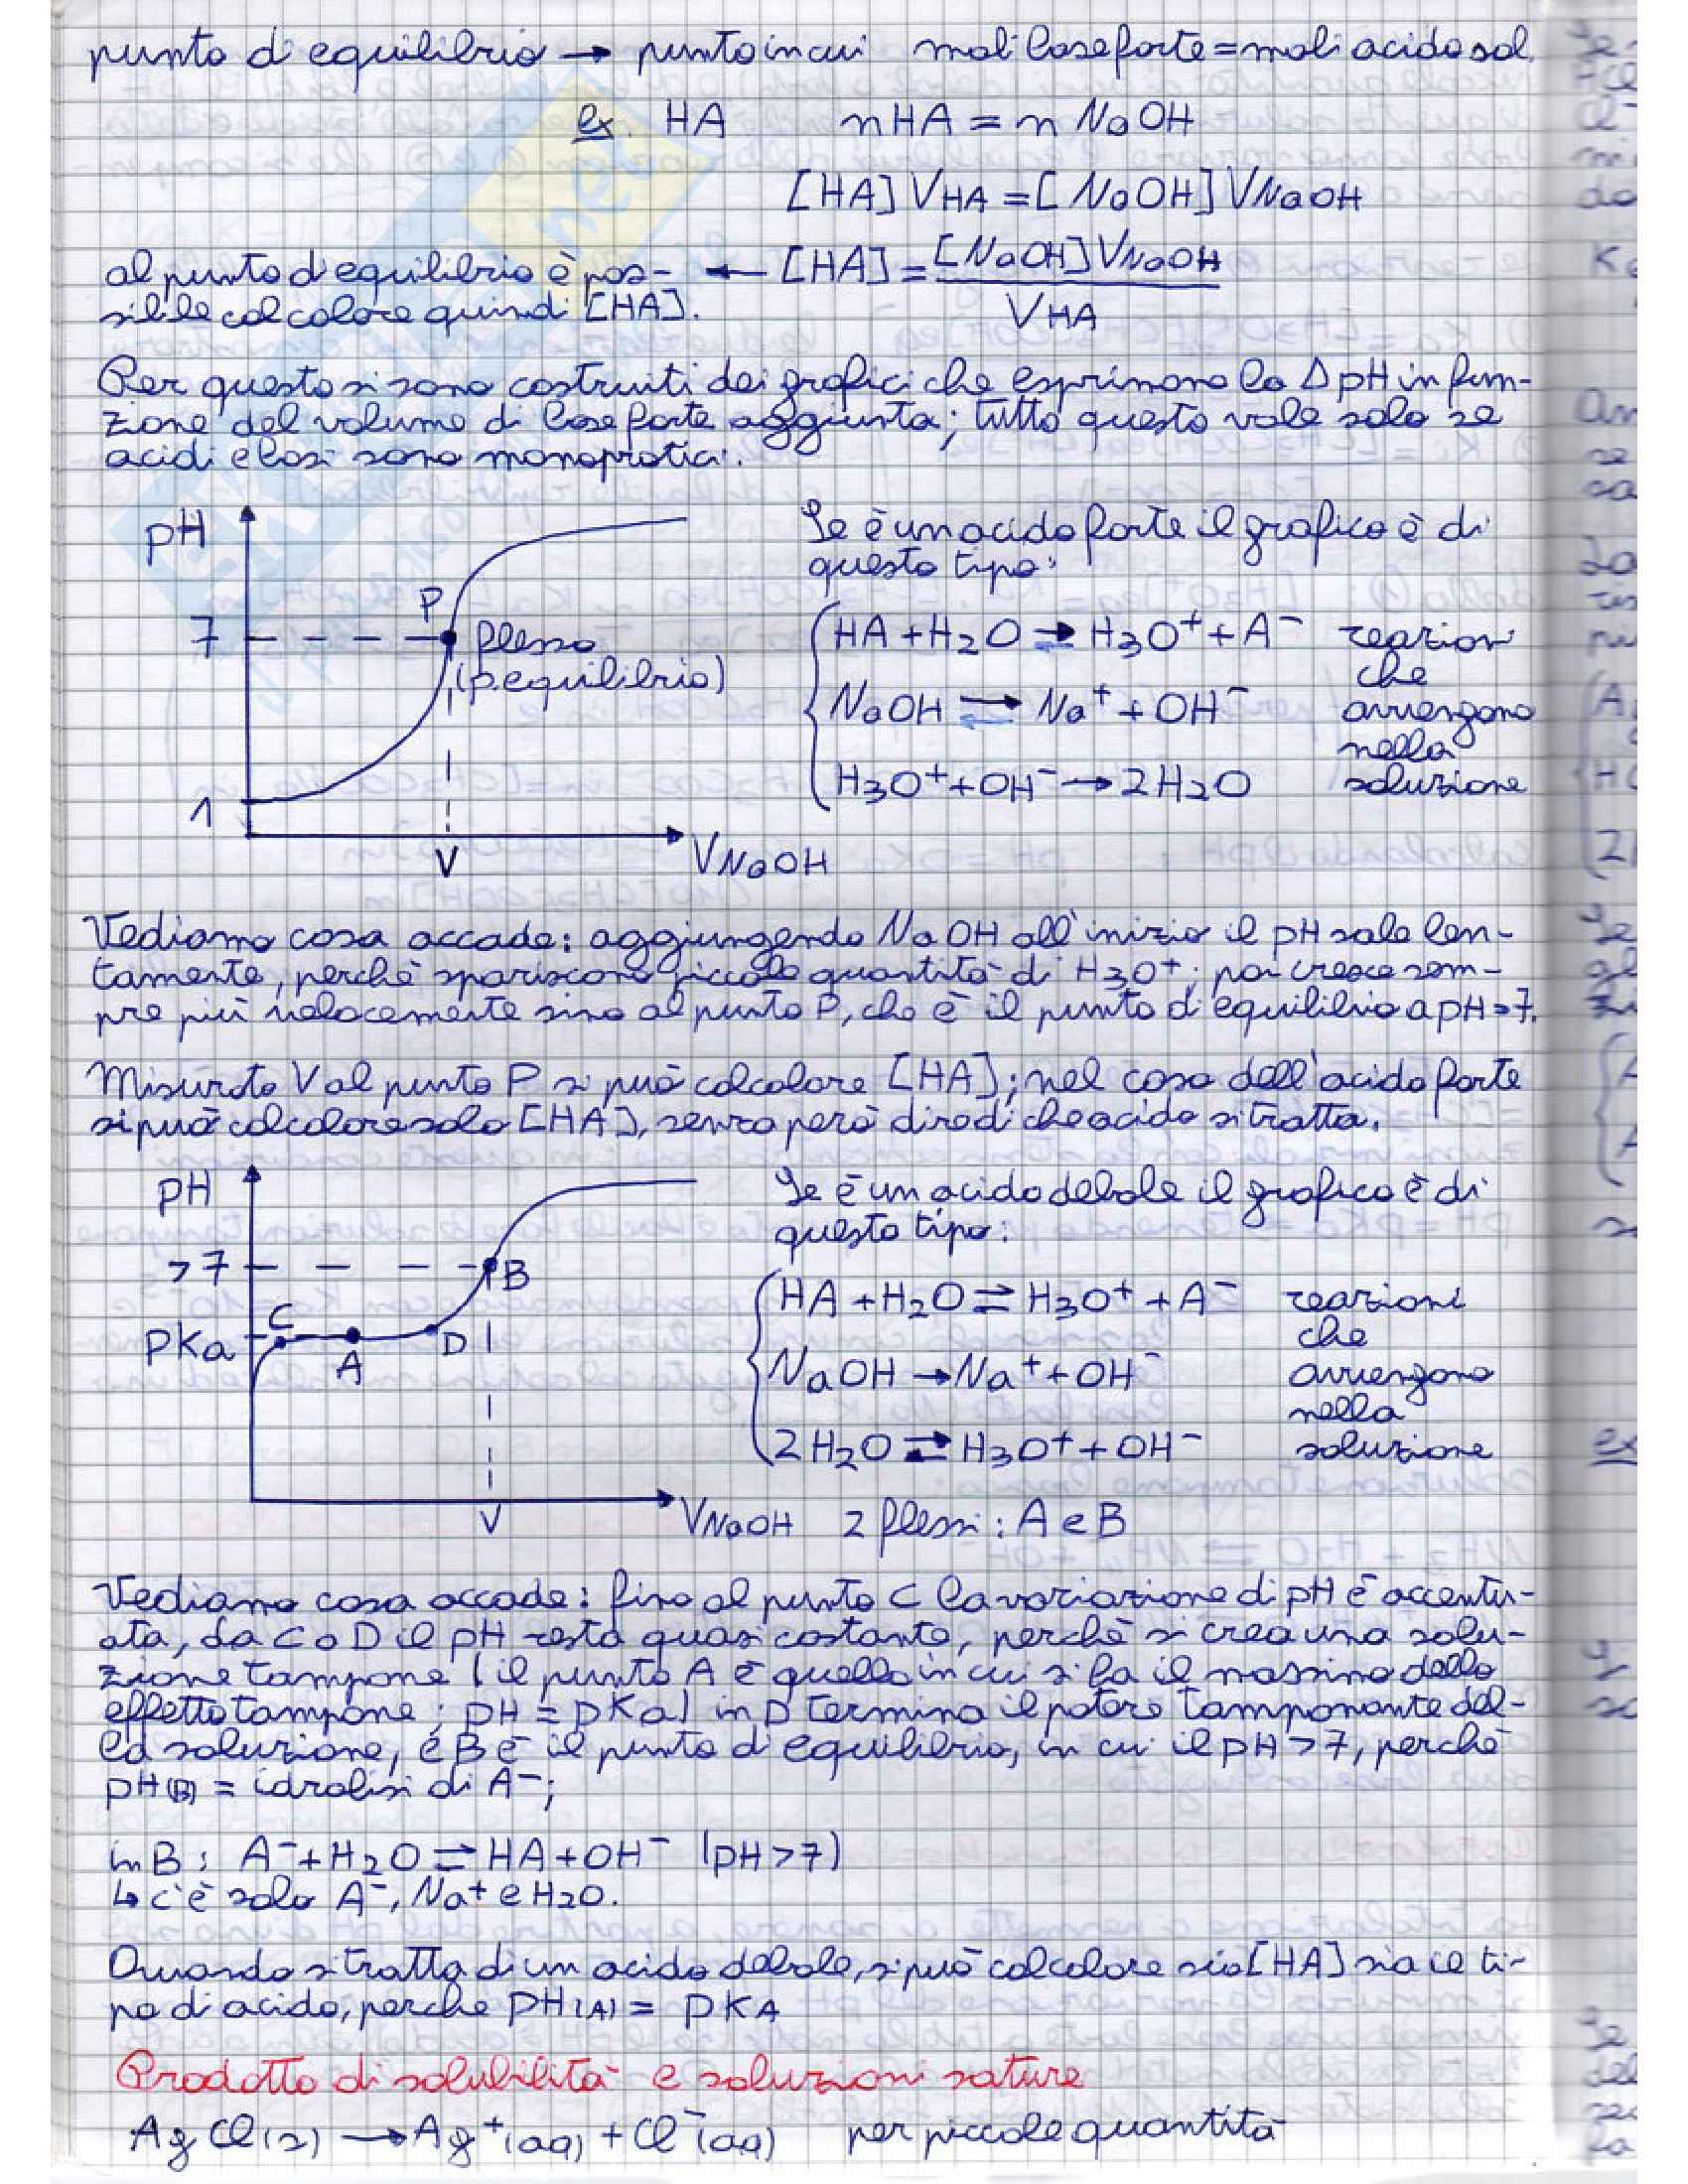 punto d'equilibrio → punto in cui moli base forte = moli acido sol.
ex. HA nHA = n NaOH
[HA] VHA = [NaOH] VNaOH
al punto d'equilibrio è pos- ← [HA] = [NaOH] VNaOH / VHA
sibile calcolare quindi [HA].
Per questo si sono costruiti dei grafici che esprimono la Δ pH in fun-
zione del volume di base forte aggiunta; tutto questo vale solo se
acidi e basi sono monoprotici.
pH
Se è un acido forte il grafico è di
questo tipo:
P
7 flesso
(p. equilibrio)
HA + H2O ⇄ H3O+ + A- reazioni
che
NaOH ⇄ Na+ + OH- avvengono
nella
H3O+ + OH- → 2H2O soluzione
1
V VNaOH
Vediamo cosa accade: aggiungendo NaOH all'inizio il pH sale len-
tamente, perchè spariscono piccole quantità di H3O+; poi cresce sem-
pre più velocemente sino al punto P, che è il punto d'equilibrio a pH=7.
Misurato V al punto P si può calcolare [HA]; nel caso dell'acido forte
si può calcolare solo [HA], senza però dire di che acido si tratta.
pH
Se è un acido debole il grafico è di
questo tipo:
>7 B
C
pKa A D
HA + H2O ⇄ H3O+ + A- reazioni
che
NaOH → Na+ + OH- avvengono
nella
2H2O ⇄ H3O+ + OH- soluzione
V VNaOH 2 flessi: A e B
Vediamo cosa accade: fino al punto C la variazione di pH è accentu-
ata, da C a D il pH resta quasi costante, perchè si crea una solu-
zione tampone (il punto A è quello in cui si ha il massimo dello
effetto tampone: pH = pKa) in D termina il potere tamponante del-
la soluzione, e B è il punto d'equilibrio, in cui il pH > 7, perchè
pH(B) = idrolisi di A-;
in B: A- + H2O ⇄ HA + OH- (pH > 7)
↳ c'è solo A-, Na+ e H2O.
Quando si tratta di un acido debole, si può calcolare sia [HA] sia il ti-
po d'acido, perche pH(A) = pKA
Prodotto di solubilità e soluzioni sature
AgCl(s) → Ag+(aq) + Cl-(aq) per piccole quantità